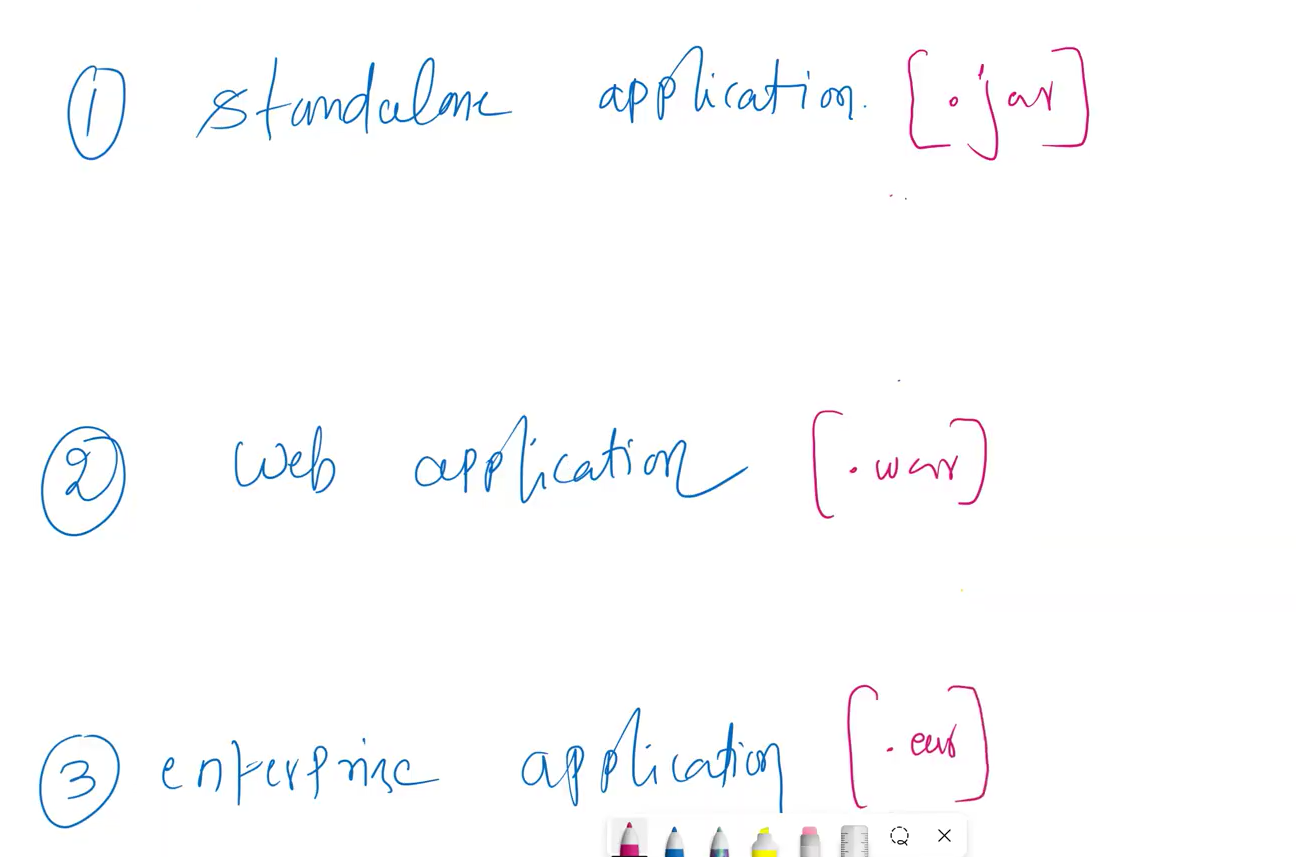 ① standalone application. [.jar]
② web application [.war]
③ enterprise application [.ear]